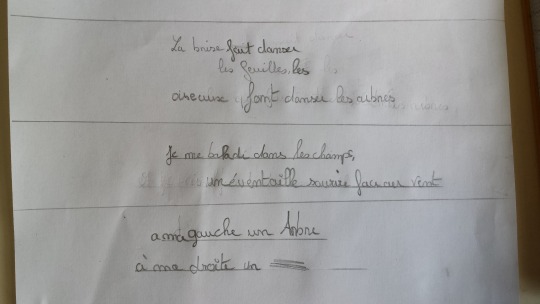 La brise fait danser
les feuilles, les
oiseaux font danser les arbres
Je me balade dans les champs,
un éventaille sourire face au vent
a ma gauche un Arbre
à ma droite un